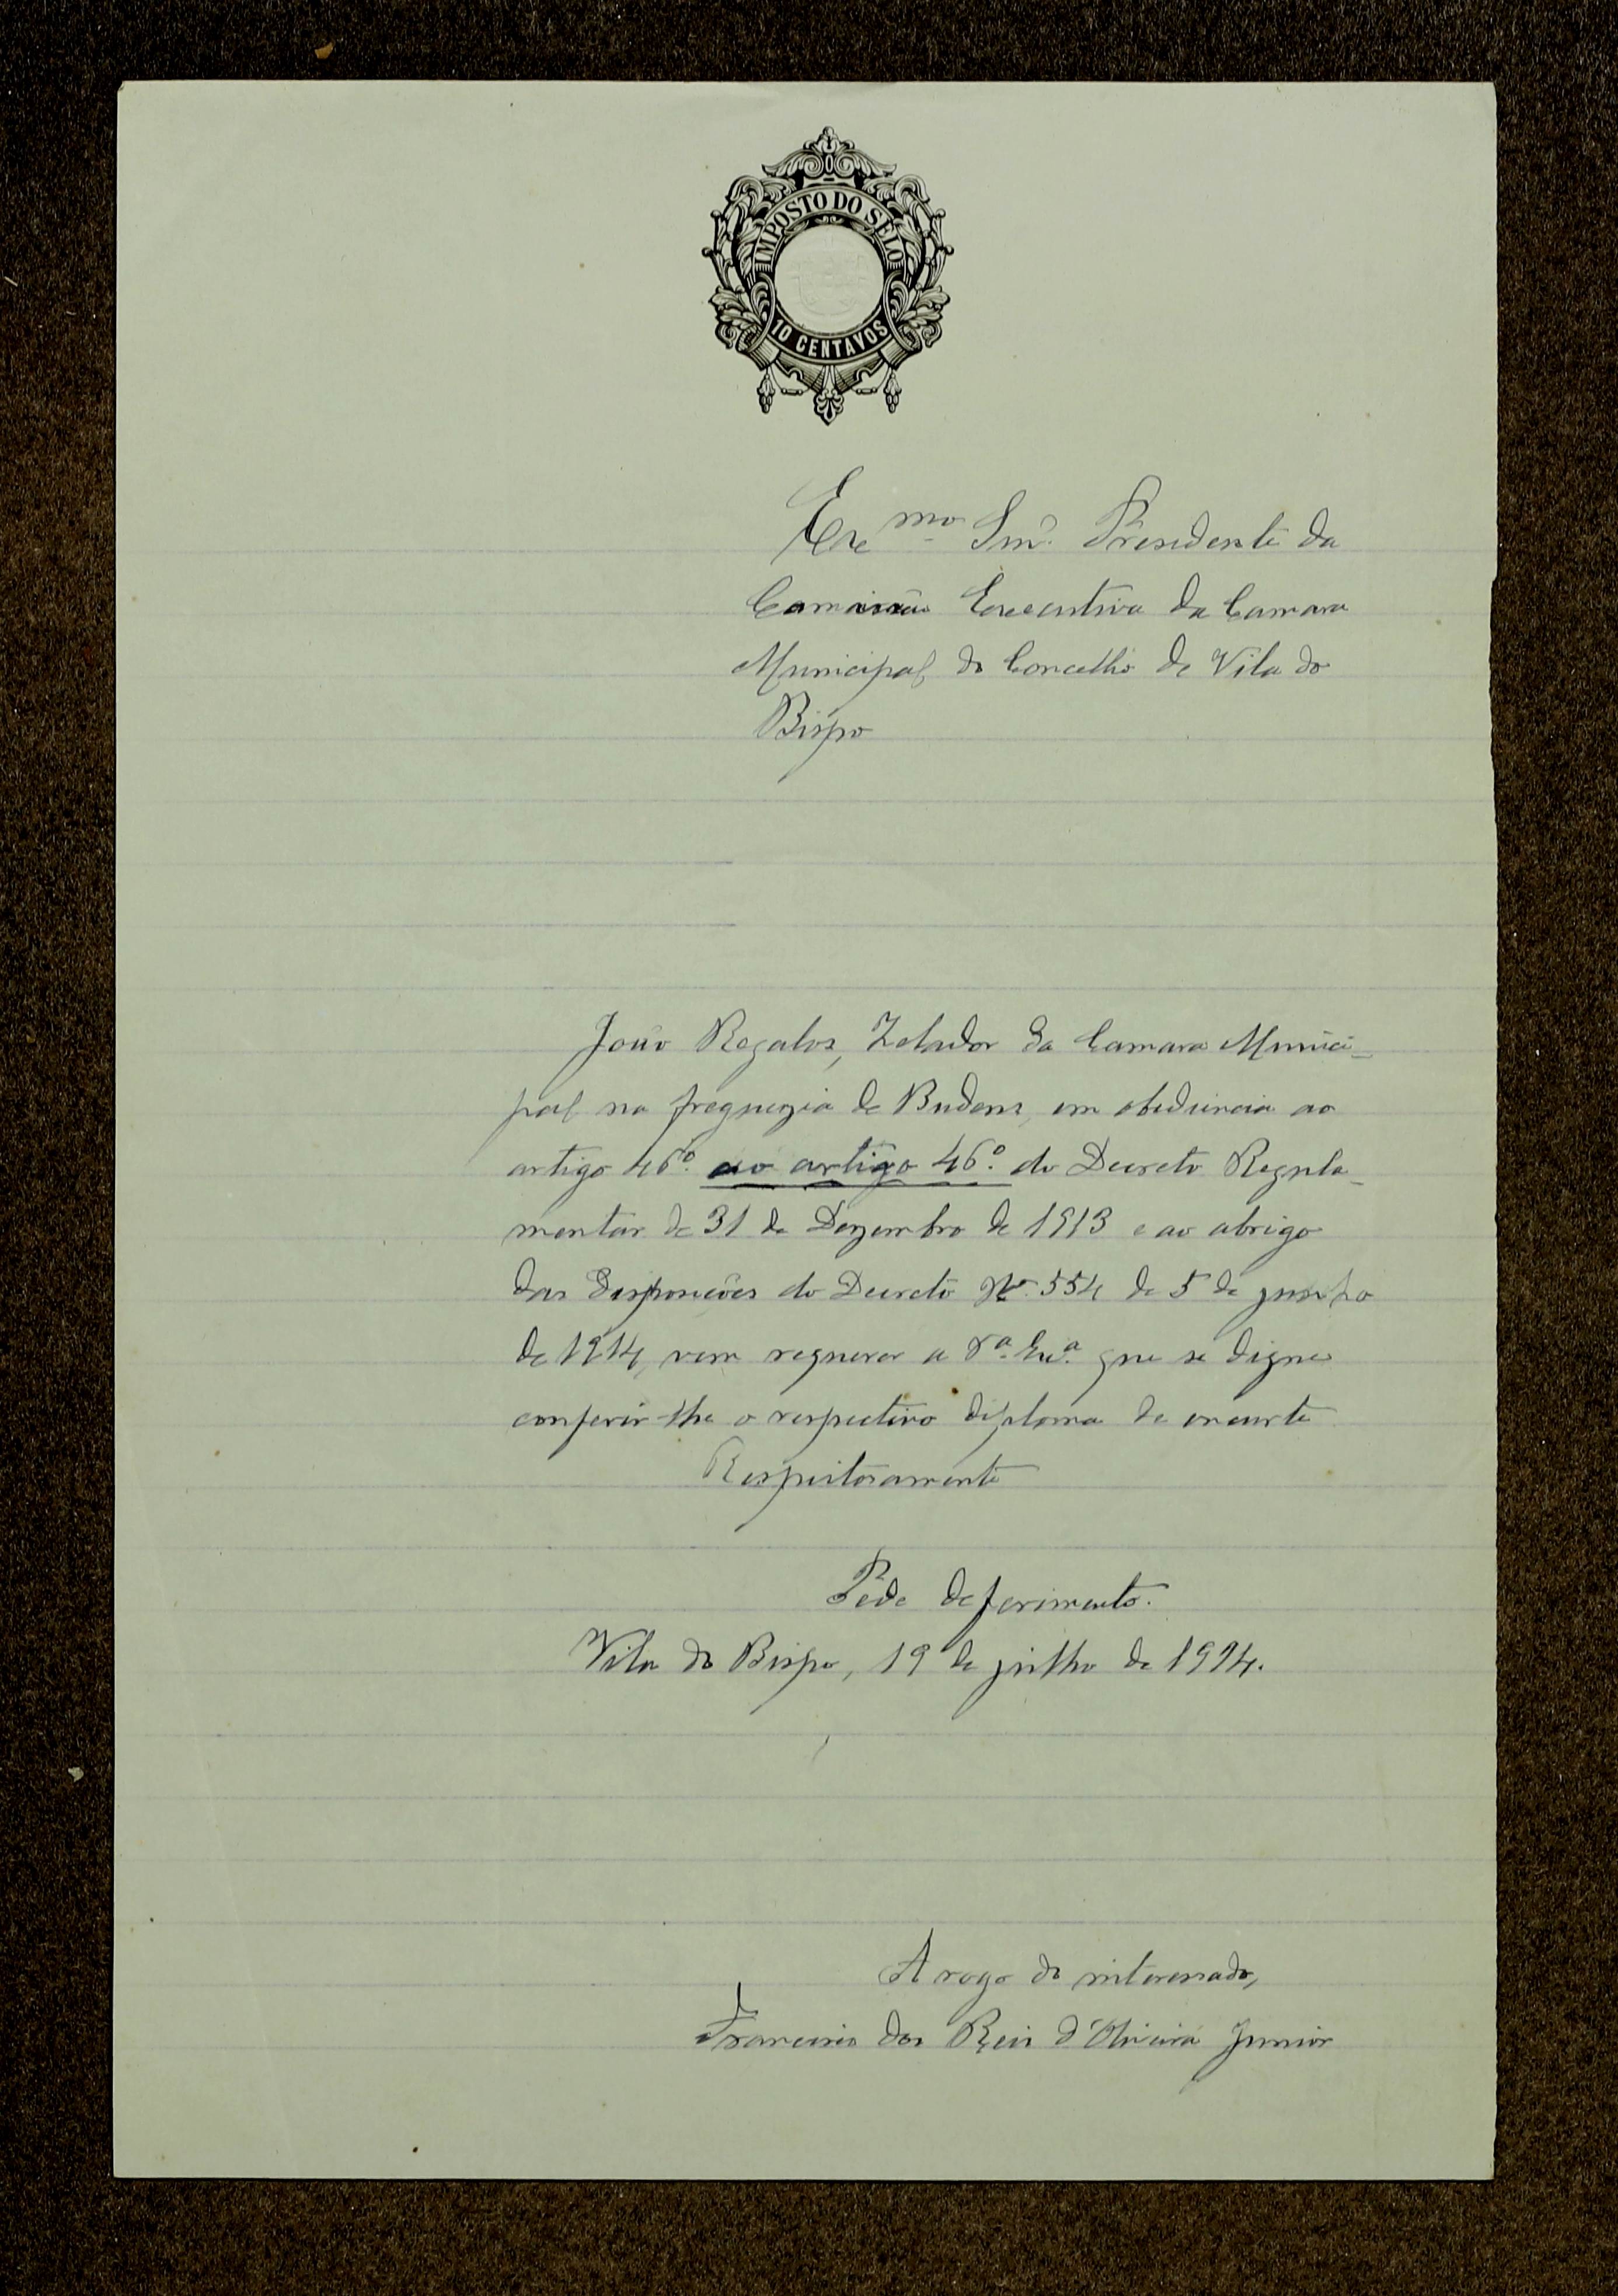 IMPOSTO DO SELO
10 CENTAVOS
Exᵐᵒ Snr. Presidente da
Comissão Executiva da Camara
Municipal do Concelho de Vila do
Bispo
João Regalos, Zelador da Camara Munici-
pal na freguezia de Budens, em obediencia ao
artigo 46º. ao artigo 46º. do Decreto Regula-
mentar de 31 de Dezembro de 1913 e ao abrigo
das disposições do Decreto Nº. 554 de 5 de junho
de 1914, vem requerer a Vª. Exª. que se digne
conferir-lhe o respectivo diploma de encarte
Respeitosamente
Péde deferimento.
Vila do Bispo, 19 de julho de 1924.
A rogo do interessado,
Francisco dos Reis d'Oliveira Junior